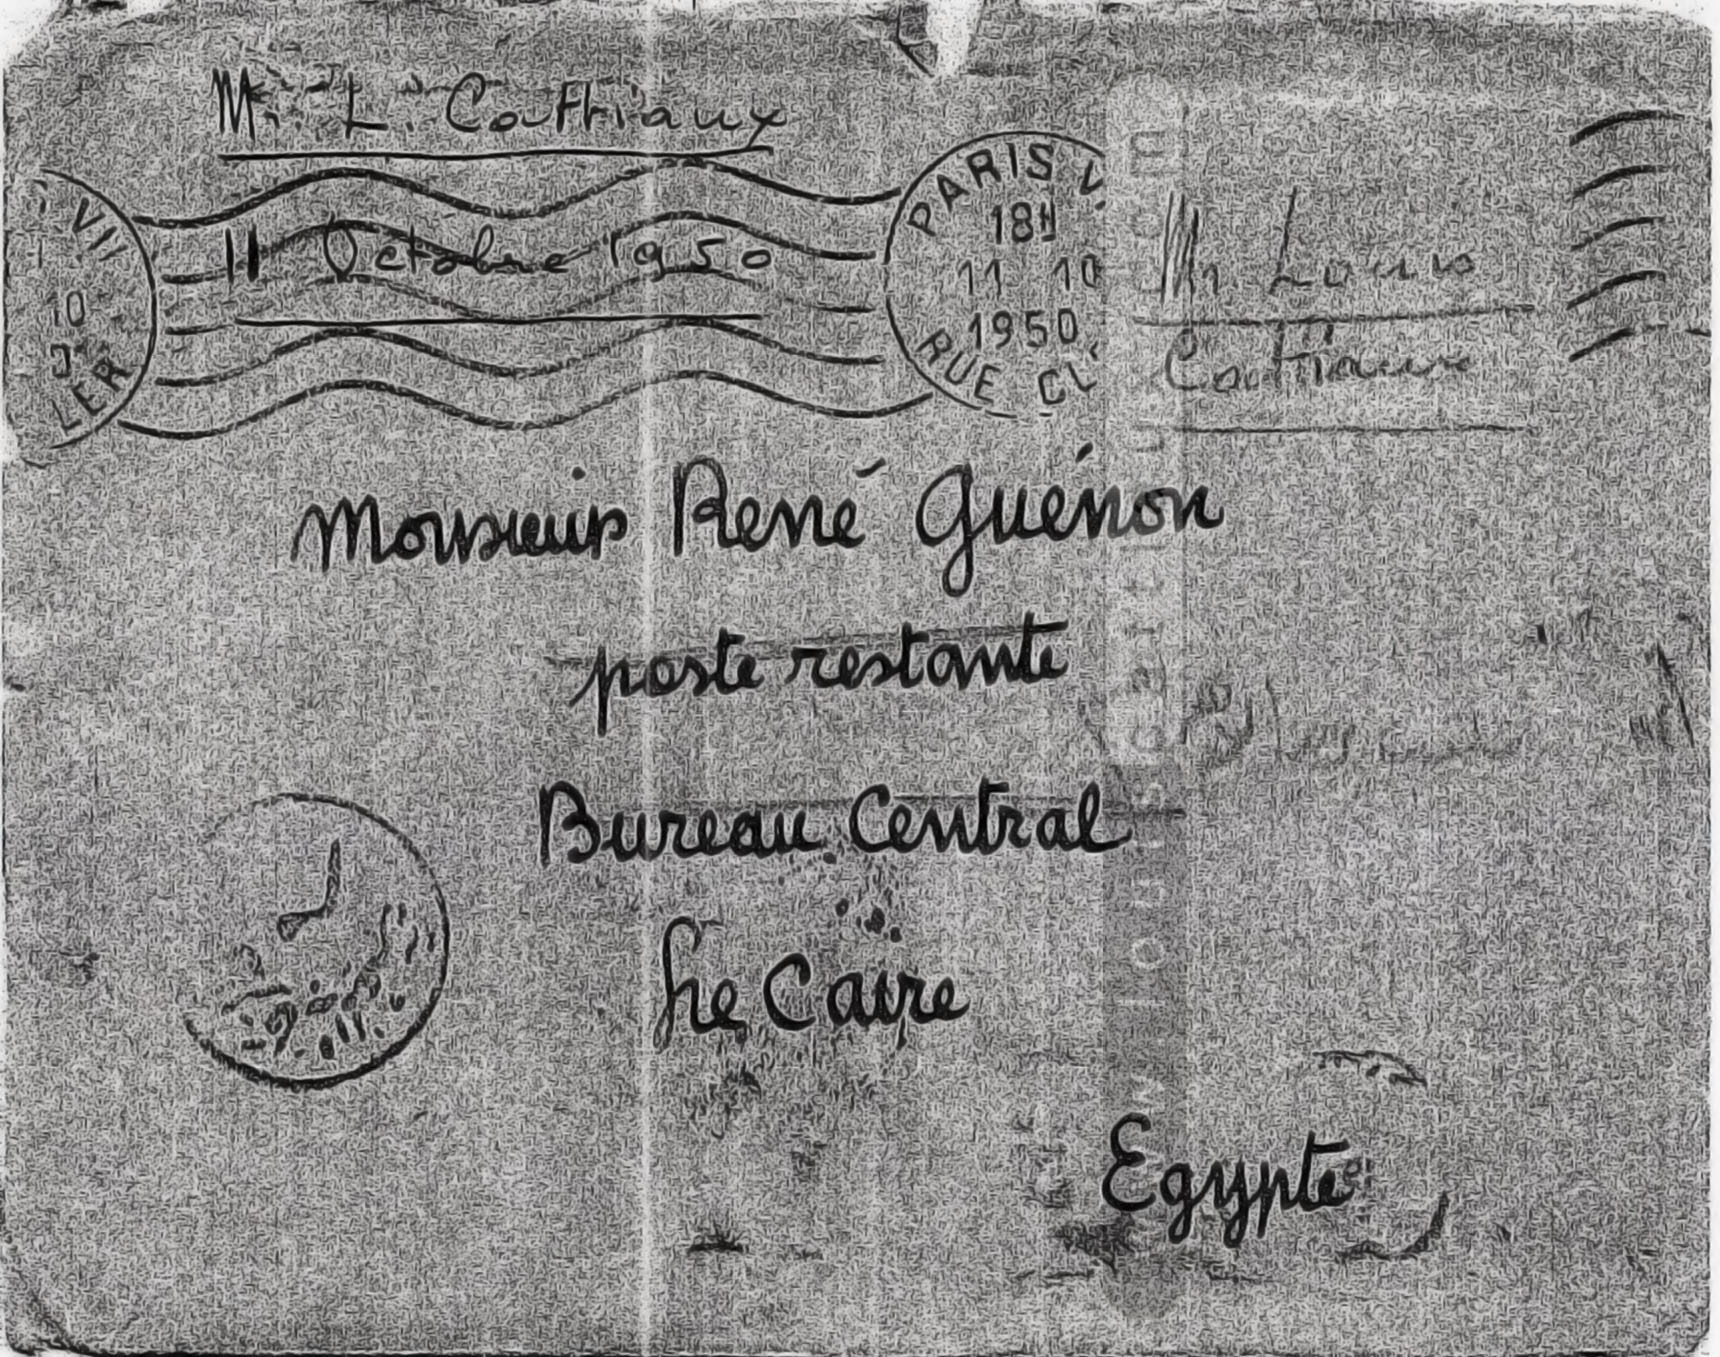 Mr. L. Cauthiaux
11 Octobre 1950
VII
10
LER
PARIS V
18H
11 10
1950
RUE CL
Mr Louis
Cauthiaux
Monsieur René Guénon
poste restante
Bureau Central
Le Caire
Egypte